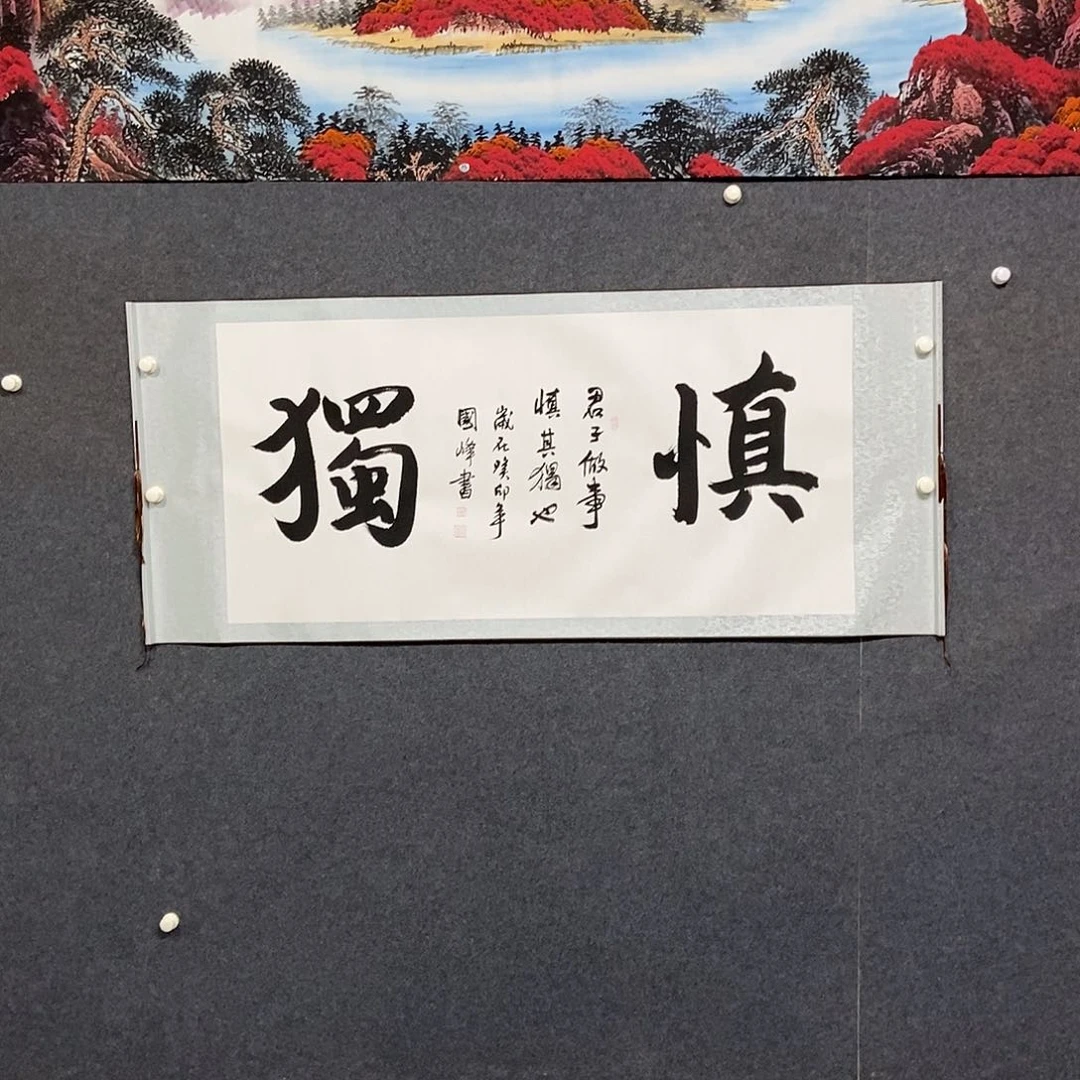 慎
君子做事
慎其獨也
歲在癸卯年
國峰書
獨